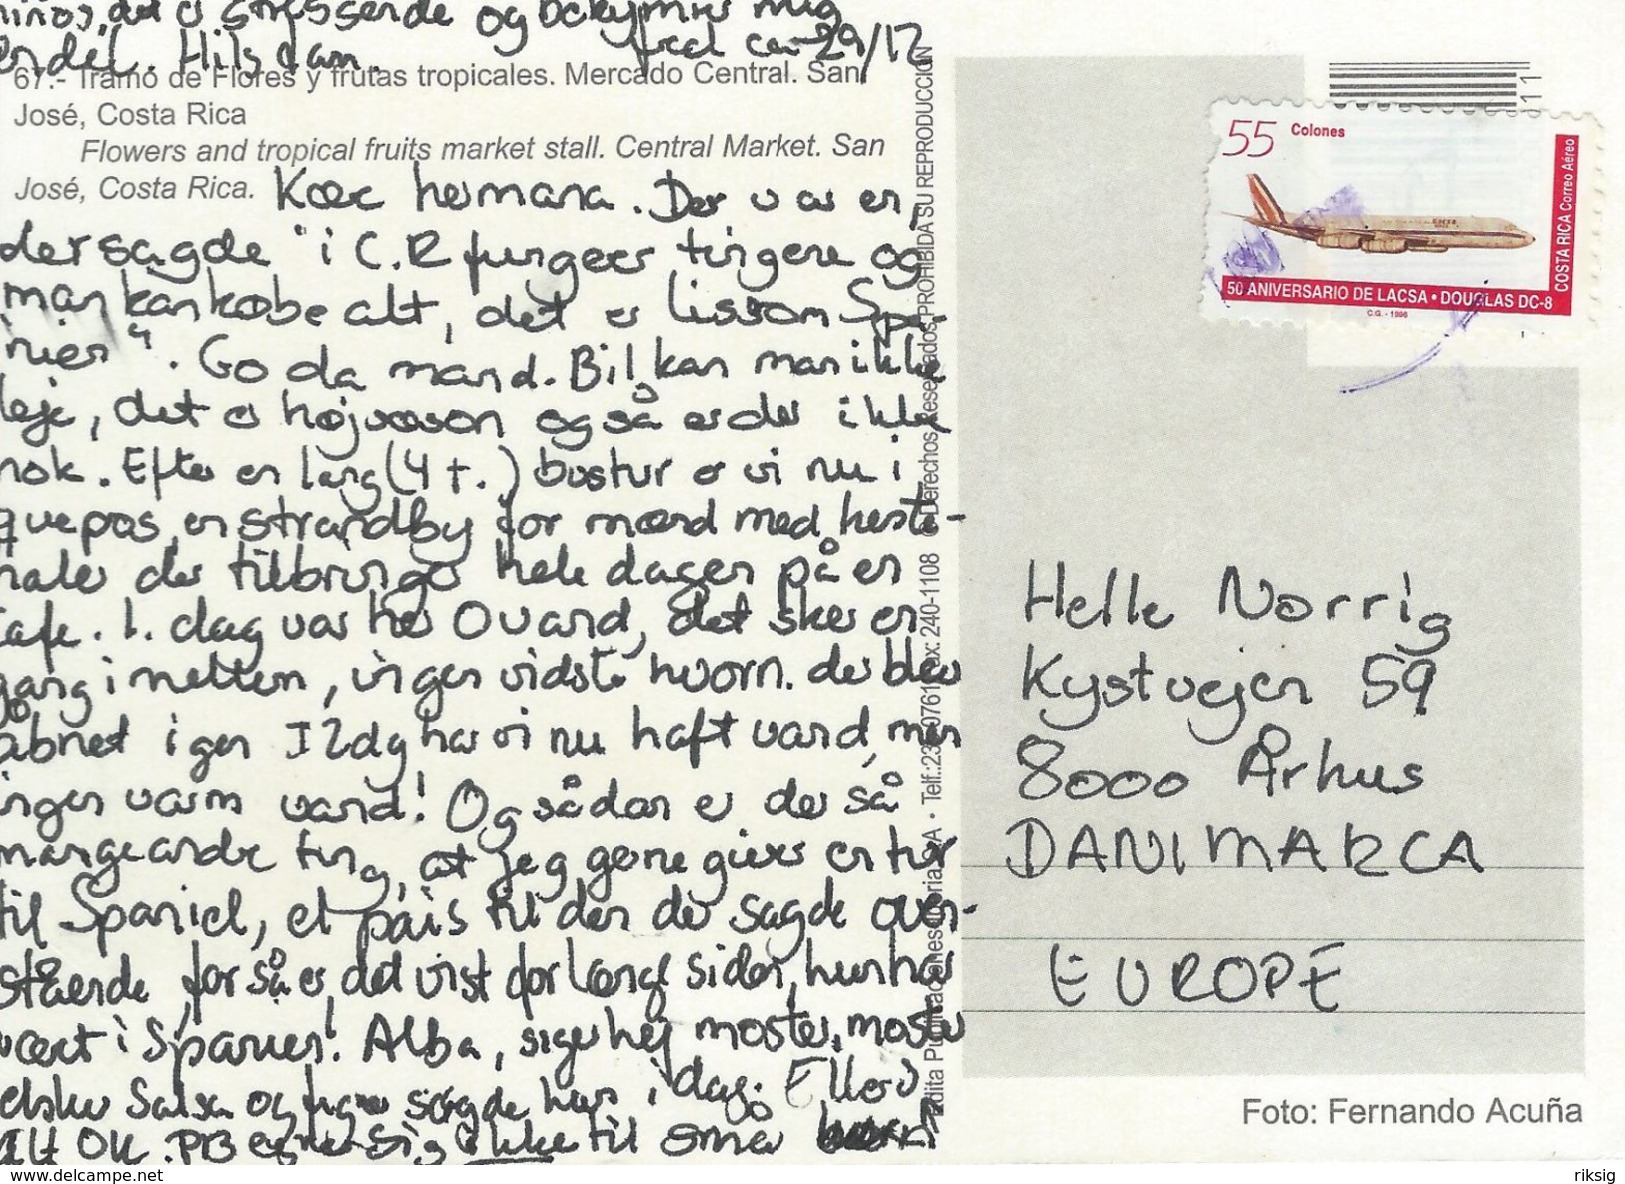 det er stressende og bekymrer mig
endel. Hils dem. fred en 29/12
67.- Tramo de Flores y frutas tropicales. Mercado Central. San
José, Costa Rica
Flowers and tropical fruits market stall. Central Market. San
José, Costa Rica. Kære hermana. Der var en,
der sagde "i C.R fungerer tingene og
man kan købe alt, det er lissom Spa-
nien". Go da mand. Bil kan man ikke
leje, det er højsæson og så er der ikke
nok. Efter en lang (4 t.) bustur er vi nu i
quepos, en strandby for mænd med heste-
haler der tilbringer hele dagen på en
cafe. 1. dag var her 0 vand, det sker en
gang i natten, ingen vidste hvorn. der blev
åbnet igen I 2 dg har vi nu haft vand, men
ingen varm vand! Og sådan er der så
mange andre ting, at jeg gerne giver en tur
til Spanien, et pais til den der sagde oven-
stående, for så er det vist for længe siden, hun har
vært i Spanien! Alba, siger hej moster, moster
elsker Salsa og sagde hun i dag. Ellers
alt OK. PB egner sig ikke til oma
Edita Publicaciones · Telf.: 240-1108 © Derechos Reservados PROHIBIDA SU REPRODUCCION
11
55 Colones
COSTA RICA Correo Aéreo
50 ANIVERSARIO DE LACSA • DOUGLAS DC-8
C.G. - 1996
Helle Norrig
Kystvejen 59
8000 Århus
DANIMARCA
EUROPE
Foto: Fernando Acuña
www.delcampe.net
riksig